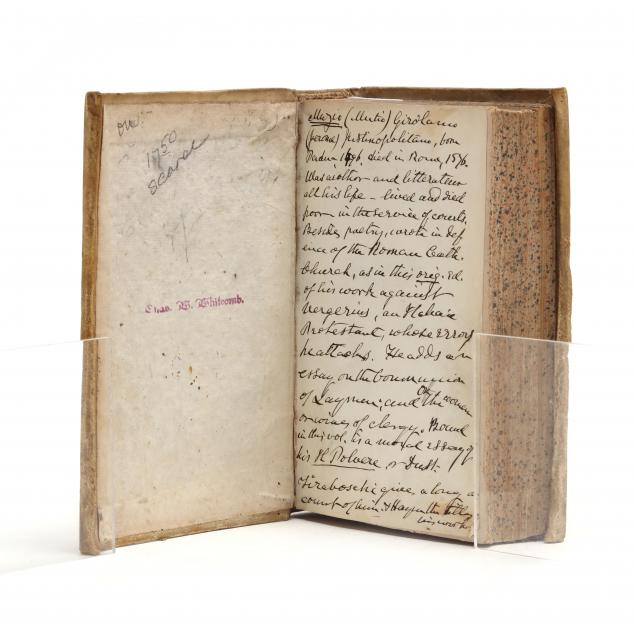 ove:
17.50
scarce
Chas. W. Whitcomb.
Muzio (Mutio) Girolamo
Justinopolitano, born
Padua 1496. died in Rome, 1576.
Was author and litterateur
all his life – lived and died
poor in the service of courts.
Besides poetry, wrote in def
ence of the Roman Cath.
Church, as in this orig. ed.
of his work against
Vergerius, an Italian
Protestant, whose errors
he attacks. He adds an
essay on the Communion
of Laymen; and On the women
or wives of clergy. Bound
in this vol. is a moral essay of
his Il Polvere, or Dust.
Tiraboschi gives a long a
count of him. & Haym the titles
his works